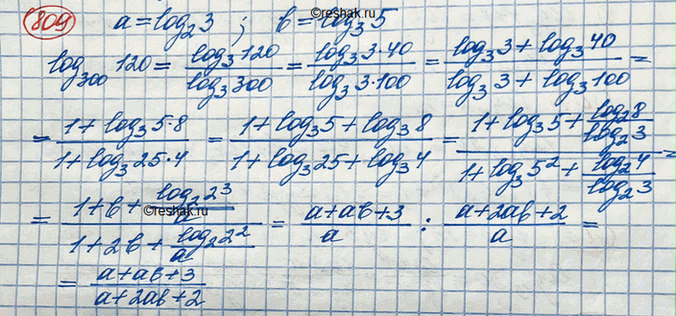 809 a = log₂3 ; b = log₃5
©reshak.ru
log₃₀₀ 120 = log₃120 / log₃300 = log₃ 3·40 / log₃ 3·100 = (log₃3 + log₃40) / (log₃3 + log₃100) =
= (1 + log₃5·8) / (1 + log₃25·4) = (1 + log₃5 + log₃8) / (1 + log₃25 + log₃4) = (1 + log₃5 + log₂8 / log₂3) / (1 + log₃5² + log₂4 / log₂3) =
= (1 + b + log₂2³ / a) / (1 + 2b + log₂2² / a) = (a + ab + 3) / a : (a + 2ab + 2) / a =
= (a + ab + 3) / (a + 2ab + 2)
©reshak.ru